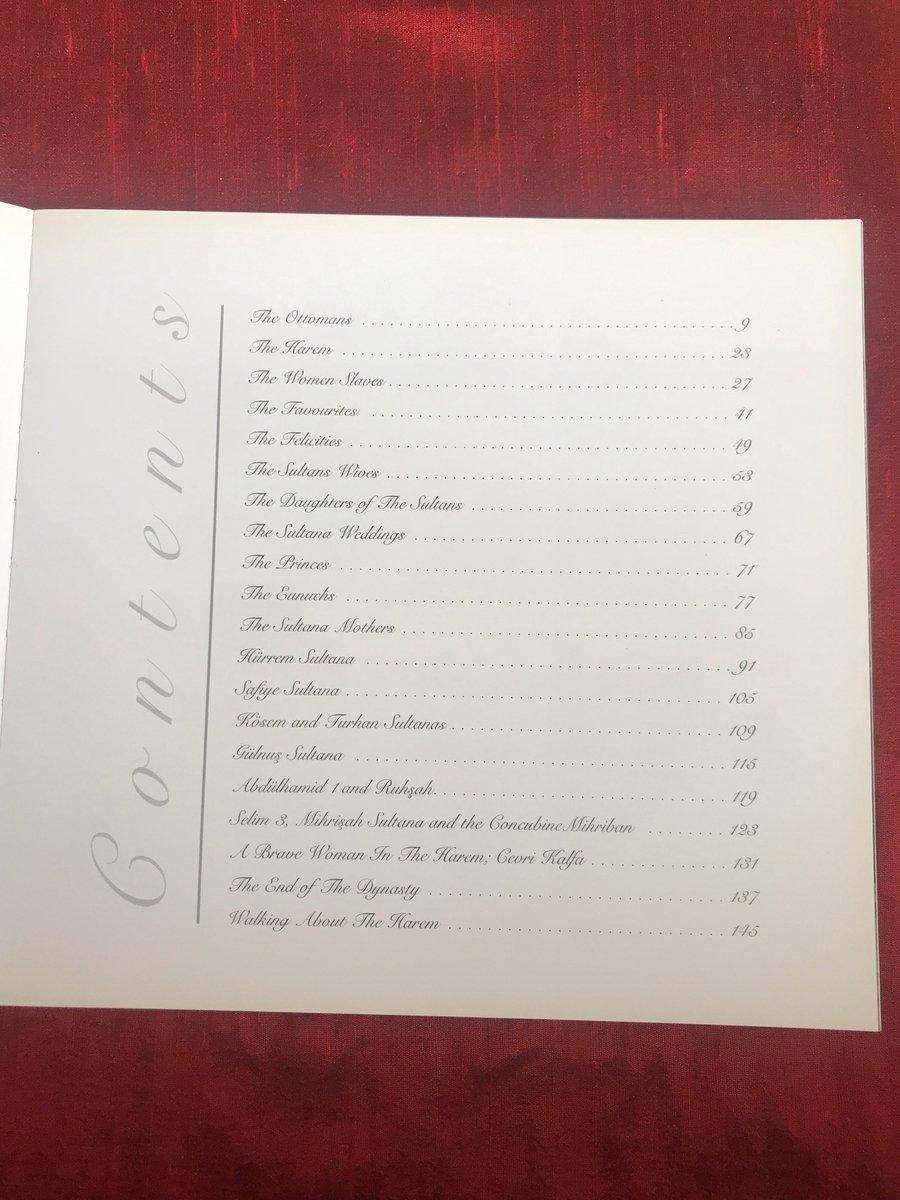 Contents
The Ottomans . . . . . . . . . . . . . . . . . . . . . . . . . . . . . . . . . . . . . . . 9
The Harem . . . . . . . . . . . . . . . . . . . . . . . . . . . . . . . . . . . . . . . 23
The Women Slaves . . . . . . . . . . . . . . . . . . . . . . . . . . . . . . . . . . . 27
The Favourites . . . . . . . . . . . . . . . . . . . . . . . . . . . . . . . . . . . . . 41
The Felicities . . . . . . . . . . . . . . . . . . . . . . . . . . . . . . . . . . . . . . 49
The Sultans Wives . . . . . . . . . . . . . . . . . . . . . . . . . . . . . . . . . . . 53
The Daughters of The Sultans . . . . . . . . . . . . . . . . . . . . . . . . . . . 59
The Sultana Weddings . . . . . . . . . . . . . . . . . . . . . . . . . . . . . . . . 67
The Princes . . . . . . . . . . . . . . . . . . . . . . . . . . . . . . . . . . . . . . . 71
The Eunuchs . . . . . . . . . . . . . . . . . . . . . . . . . . . . . . . . . . . . . . 77
The Sultana Mothers . . . . . . . . . . . . . . . . . . . . . . . . . . . . . . . . . 85
Hürrem Sultana . . . . . . . . . . . . . . . . . . . . . . . . . . . . . . . . . . . . 91
Safiye Sultana . . . . . . . . . . . . . . . . . . . . . . . . . . . . . . . . . . . . . 105
Kösem and Turhan Sultanas . . . . . . . . . . . . . . . . . . . . . . . . . . . . 109
Gülnuş Sultana . . . . . . . . . . . . . . . . . . . . . . . . . . . . . . . . . . . . 115
Abdülhamid 1 and Ruhşah . . . . . . . . . . . . . . . . . . . . . . . . . . . . . 119
Selim 3, Mihrişah Sultana and the Concubine Mihriban . . . . . . . . 123
A Brave Woman In The Harem; Cevri Kalfa . . . . . . . . . . . . . . . 131
The End of The Dynasty . . . . . . . . . . . . . . . . . . . . . . . . . . . . . . 137
Walking About The Harem . . . . . . . . . . . . . . . . . . . . . . . . . . . . 145